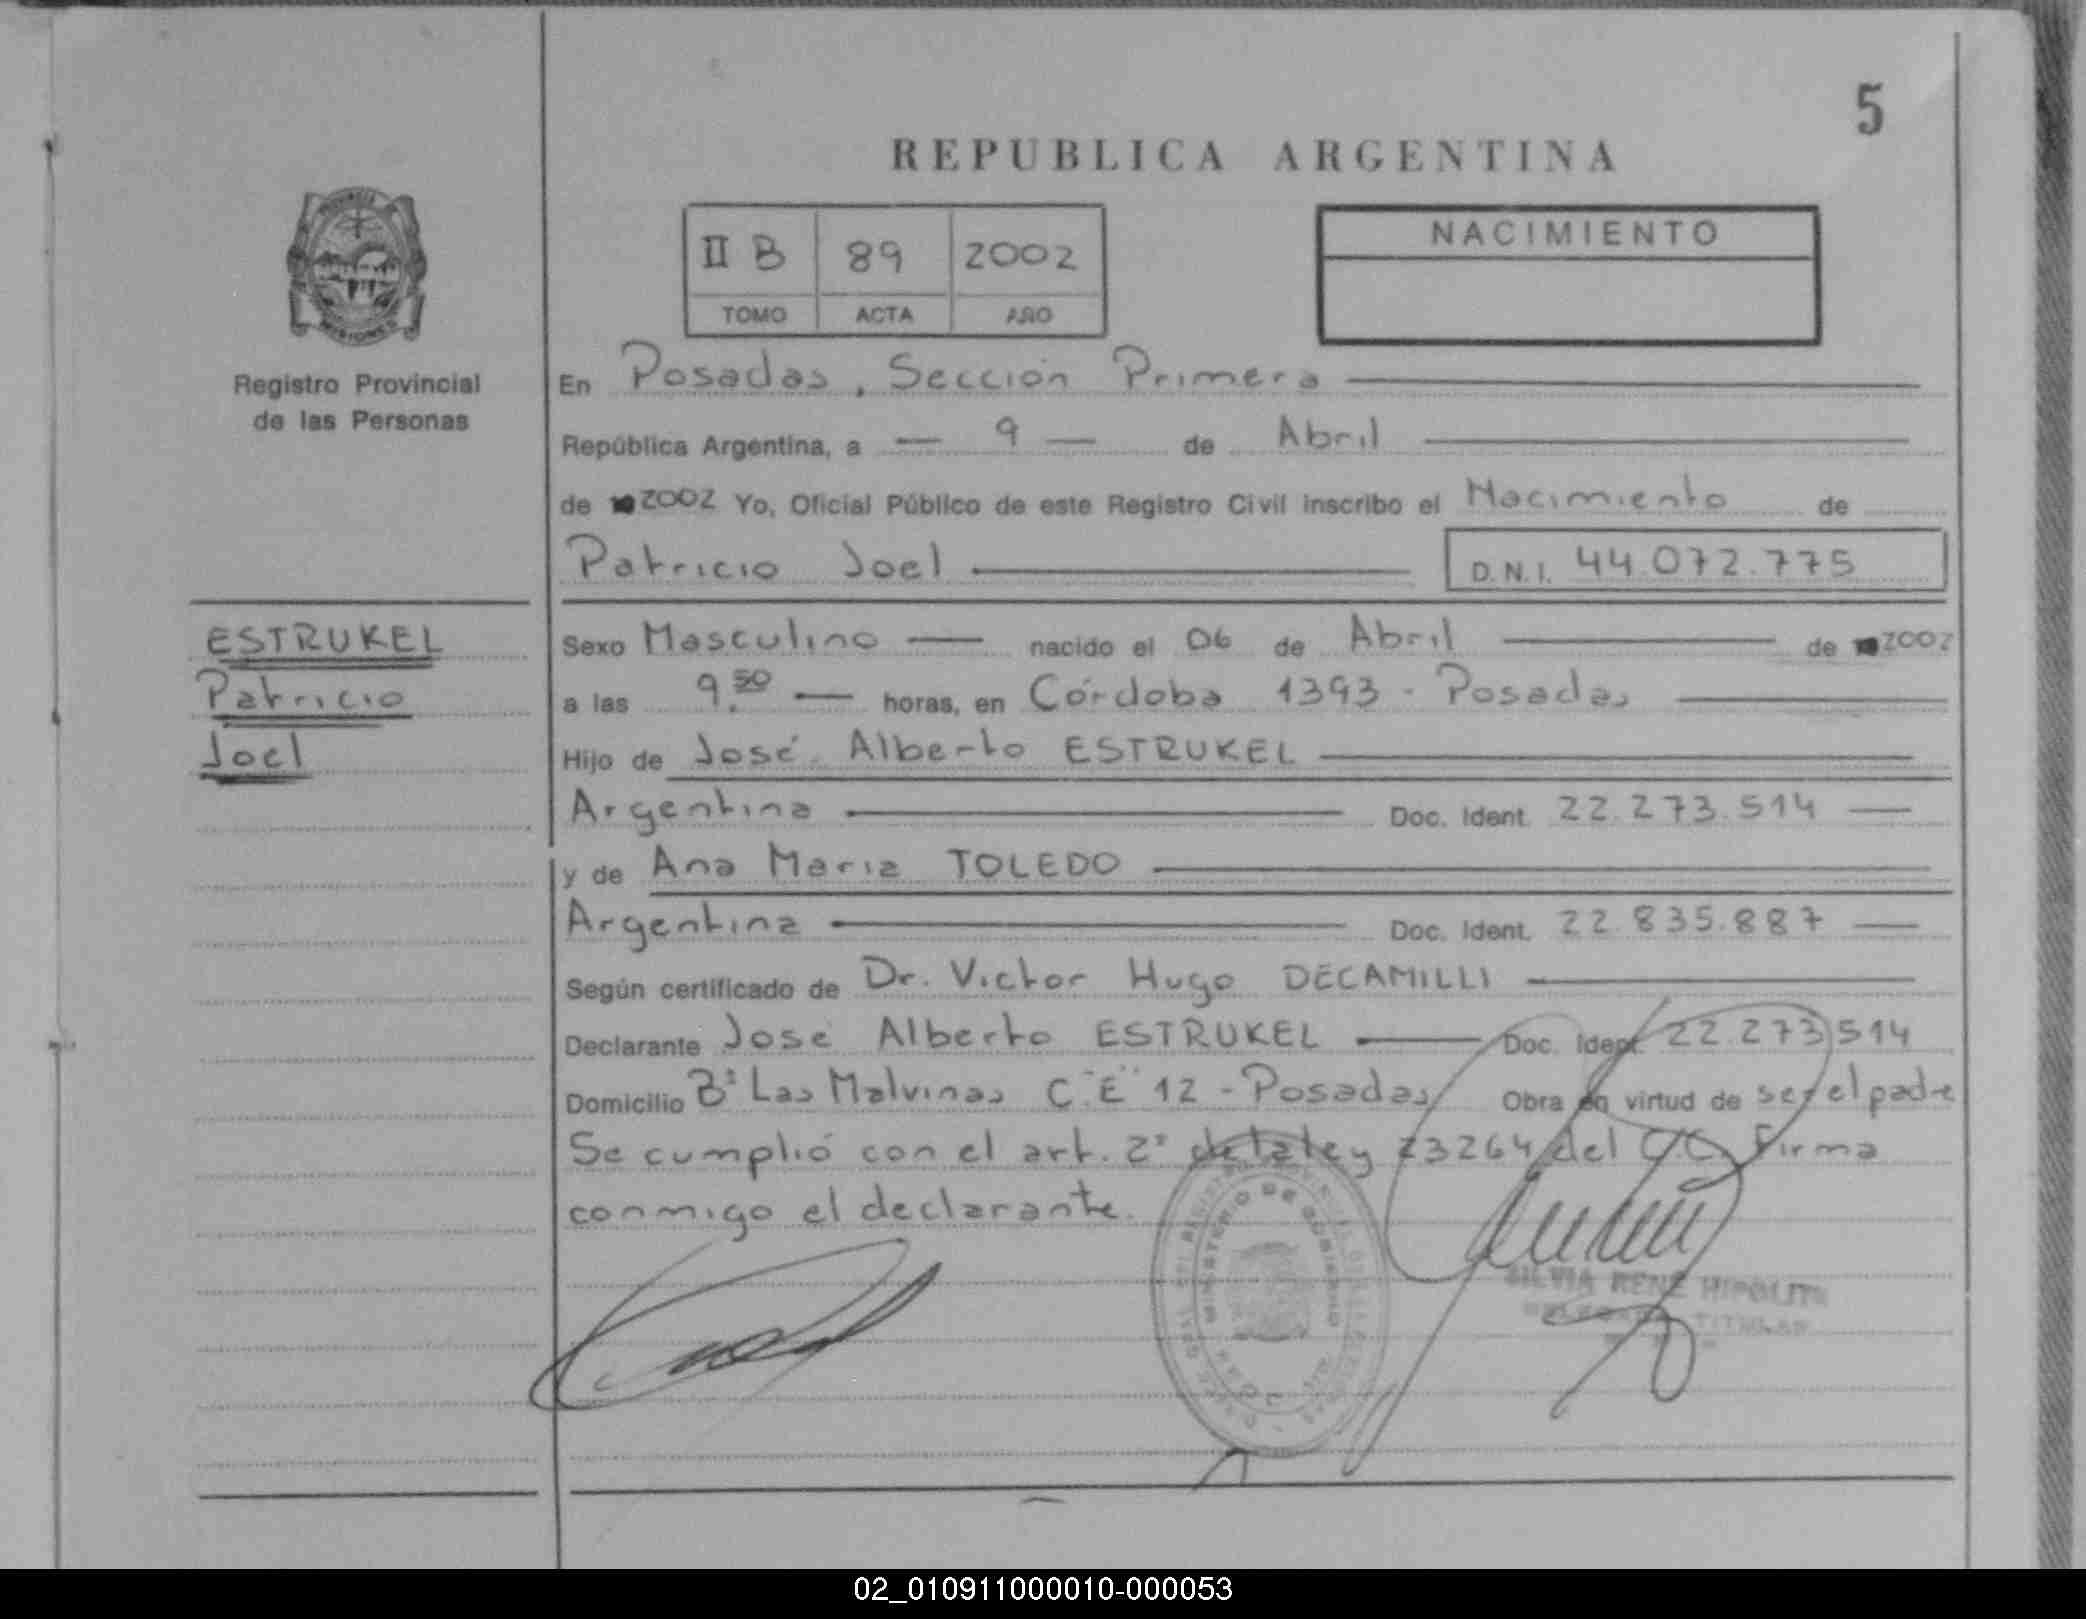 5
REPUBLICA ARGENTINA
II B 89 2002
TOMO ACTA AÑO
NACIMIENTO
PROVINCIA
MISIONES
Registro Provincial
de las Personas
En Posadas, Sección Primera
República Argentina, a 9 de Abril
de 2002 Yo, Oficial Público de este Registro Civil inscribo el Nacimiento de
Patricio Joel D.N.I. 44.072.775
ESTRUKEL
Patricio
Joel
Sexo Masculino nacido el 06 de Abril de 2002
a las 9.50 horas, en Córdoba 1393 - Posadas
Hijo de José Alberto ESTRUKEL
Argentina Doc. Ident. 22.273.514
y de Ana Maria TOLEDO
Argentina Doc. Ident. 22.835.887
Según certificado de Dr. Victor Hugo DECAMILLI
Declarante José Alberto ESTRUKEL Doc. Ident. 22.273.514
Domicilio Bº Las Malvinas C."E" 12 - Posadas Obra en virtud de ser el padre
Se cumplió con el art. 2º de la ley 23264 del C.C. Firma
conmigo el declarante.
MINISTERIO DE GOBIERNO
SILVIA RENE HIPOLITO
TITULAR
02_010911000010-000053